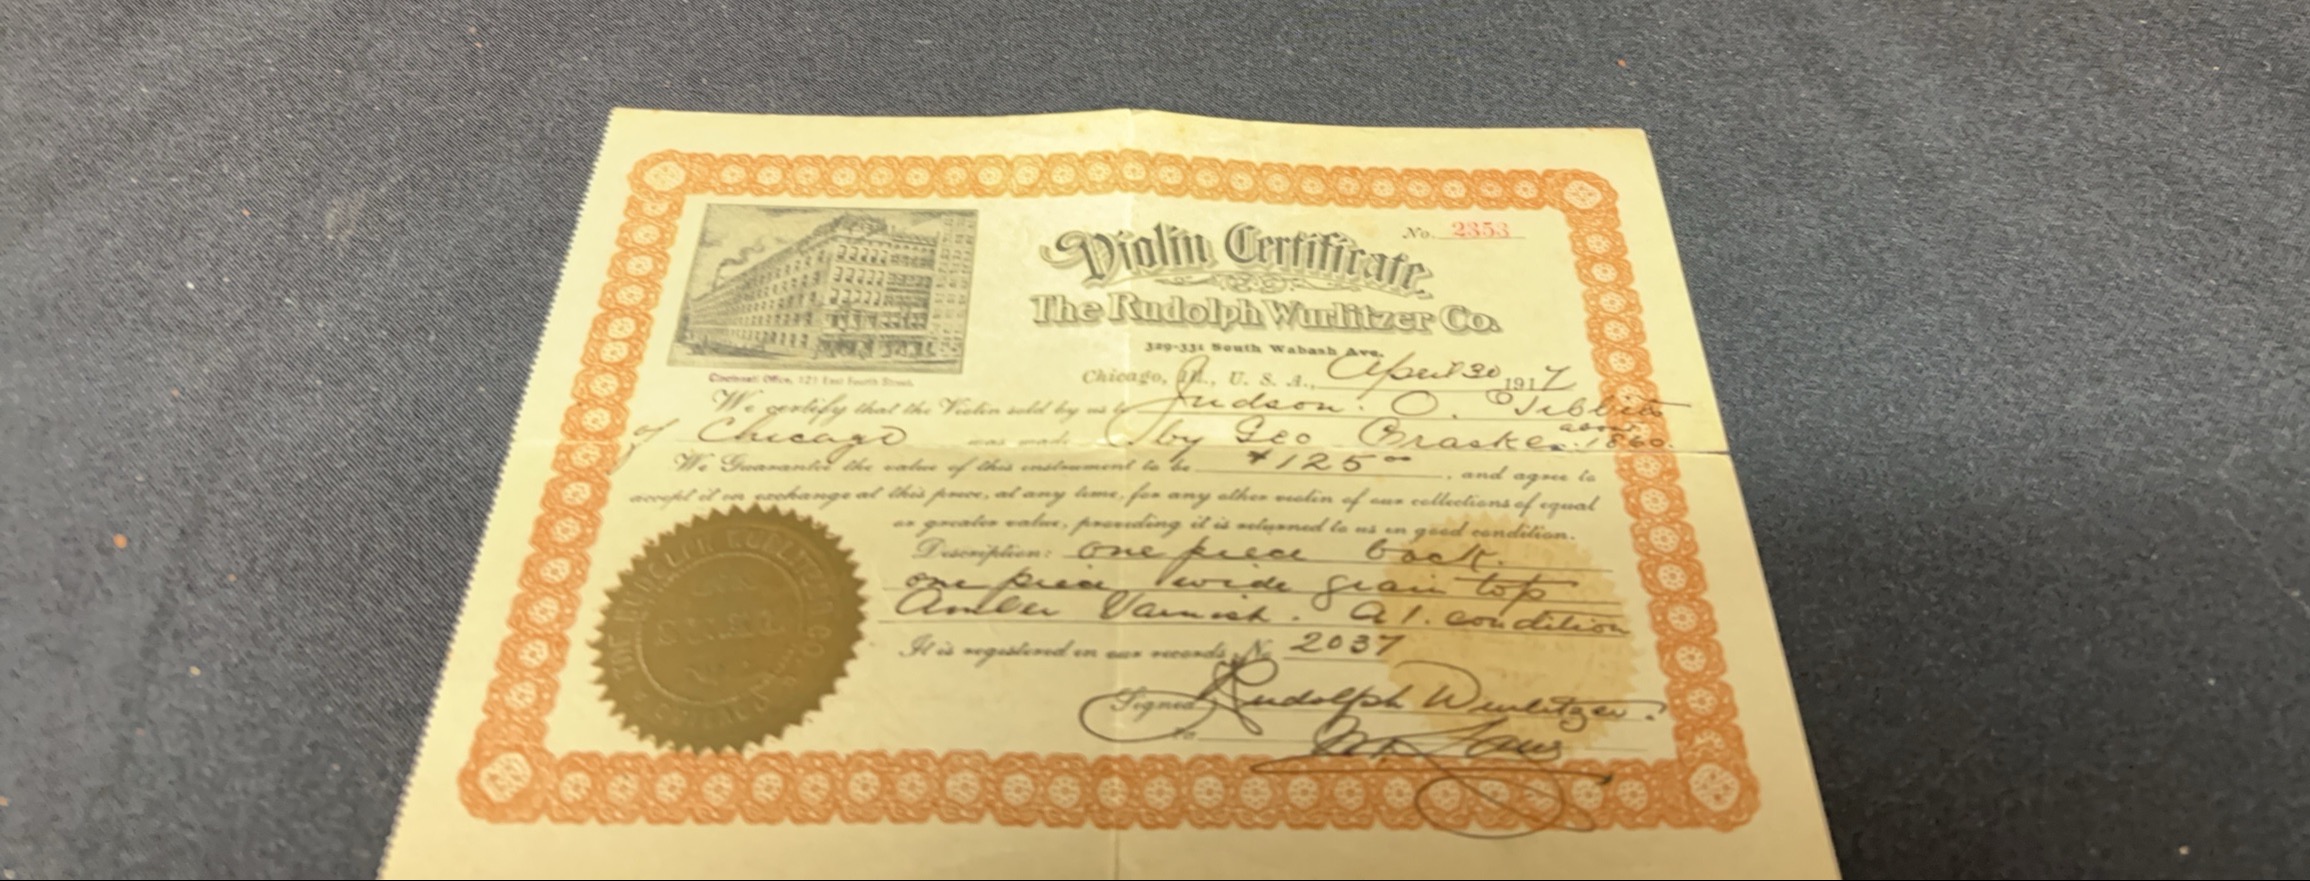 No. 2353
Violin Certificate
The Rudolph Wurlitzer Co.
329-331 South Wabash Ave.
Cincinnati Office, 121 East Fourth Street.
Chicago, Ill., U. S. A., April 30 1917
We certify that the Violin sold by us to Judson. O. Tibbits
of Chicago was made by Geo Craske. about 1860.
We Guarantee the value of this instrument to be $125 00, and agree to
accept it in exchange at this price, at any time, for any other violin of our collections of equal
or greater value, providing it is returned to us in good condition.
Description: one piece back.
one piece wide grain top
Amber Varnish. A1. condition
It is registered in our records No 2037
Signed Rudolph Wurlitzer.
THE RUDOLPH WURLITZER CO.
SEAL